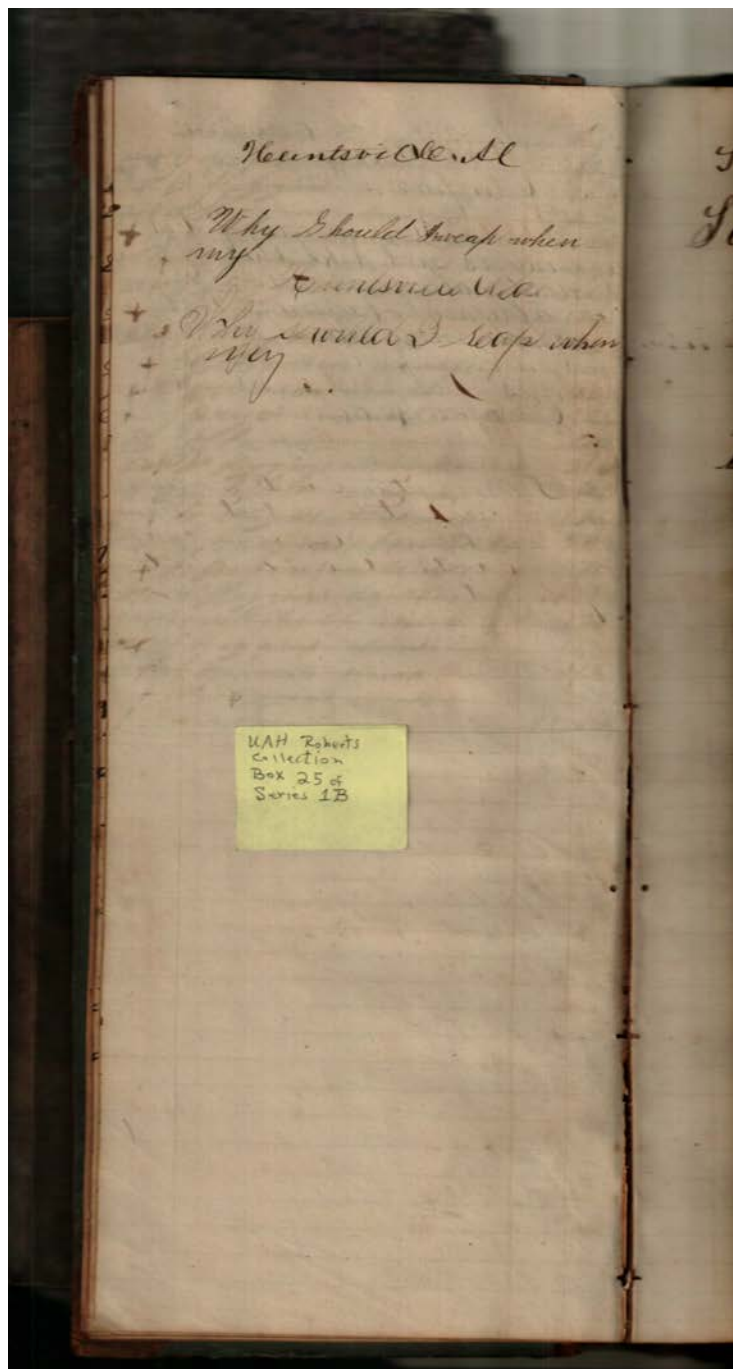 Huntsville. Al
Why Should I weap when
my
Huntsville Ala
Why Would I Leap when
my
UAH Roberts
Collection
Box 25 of
Series 1B